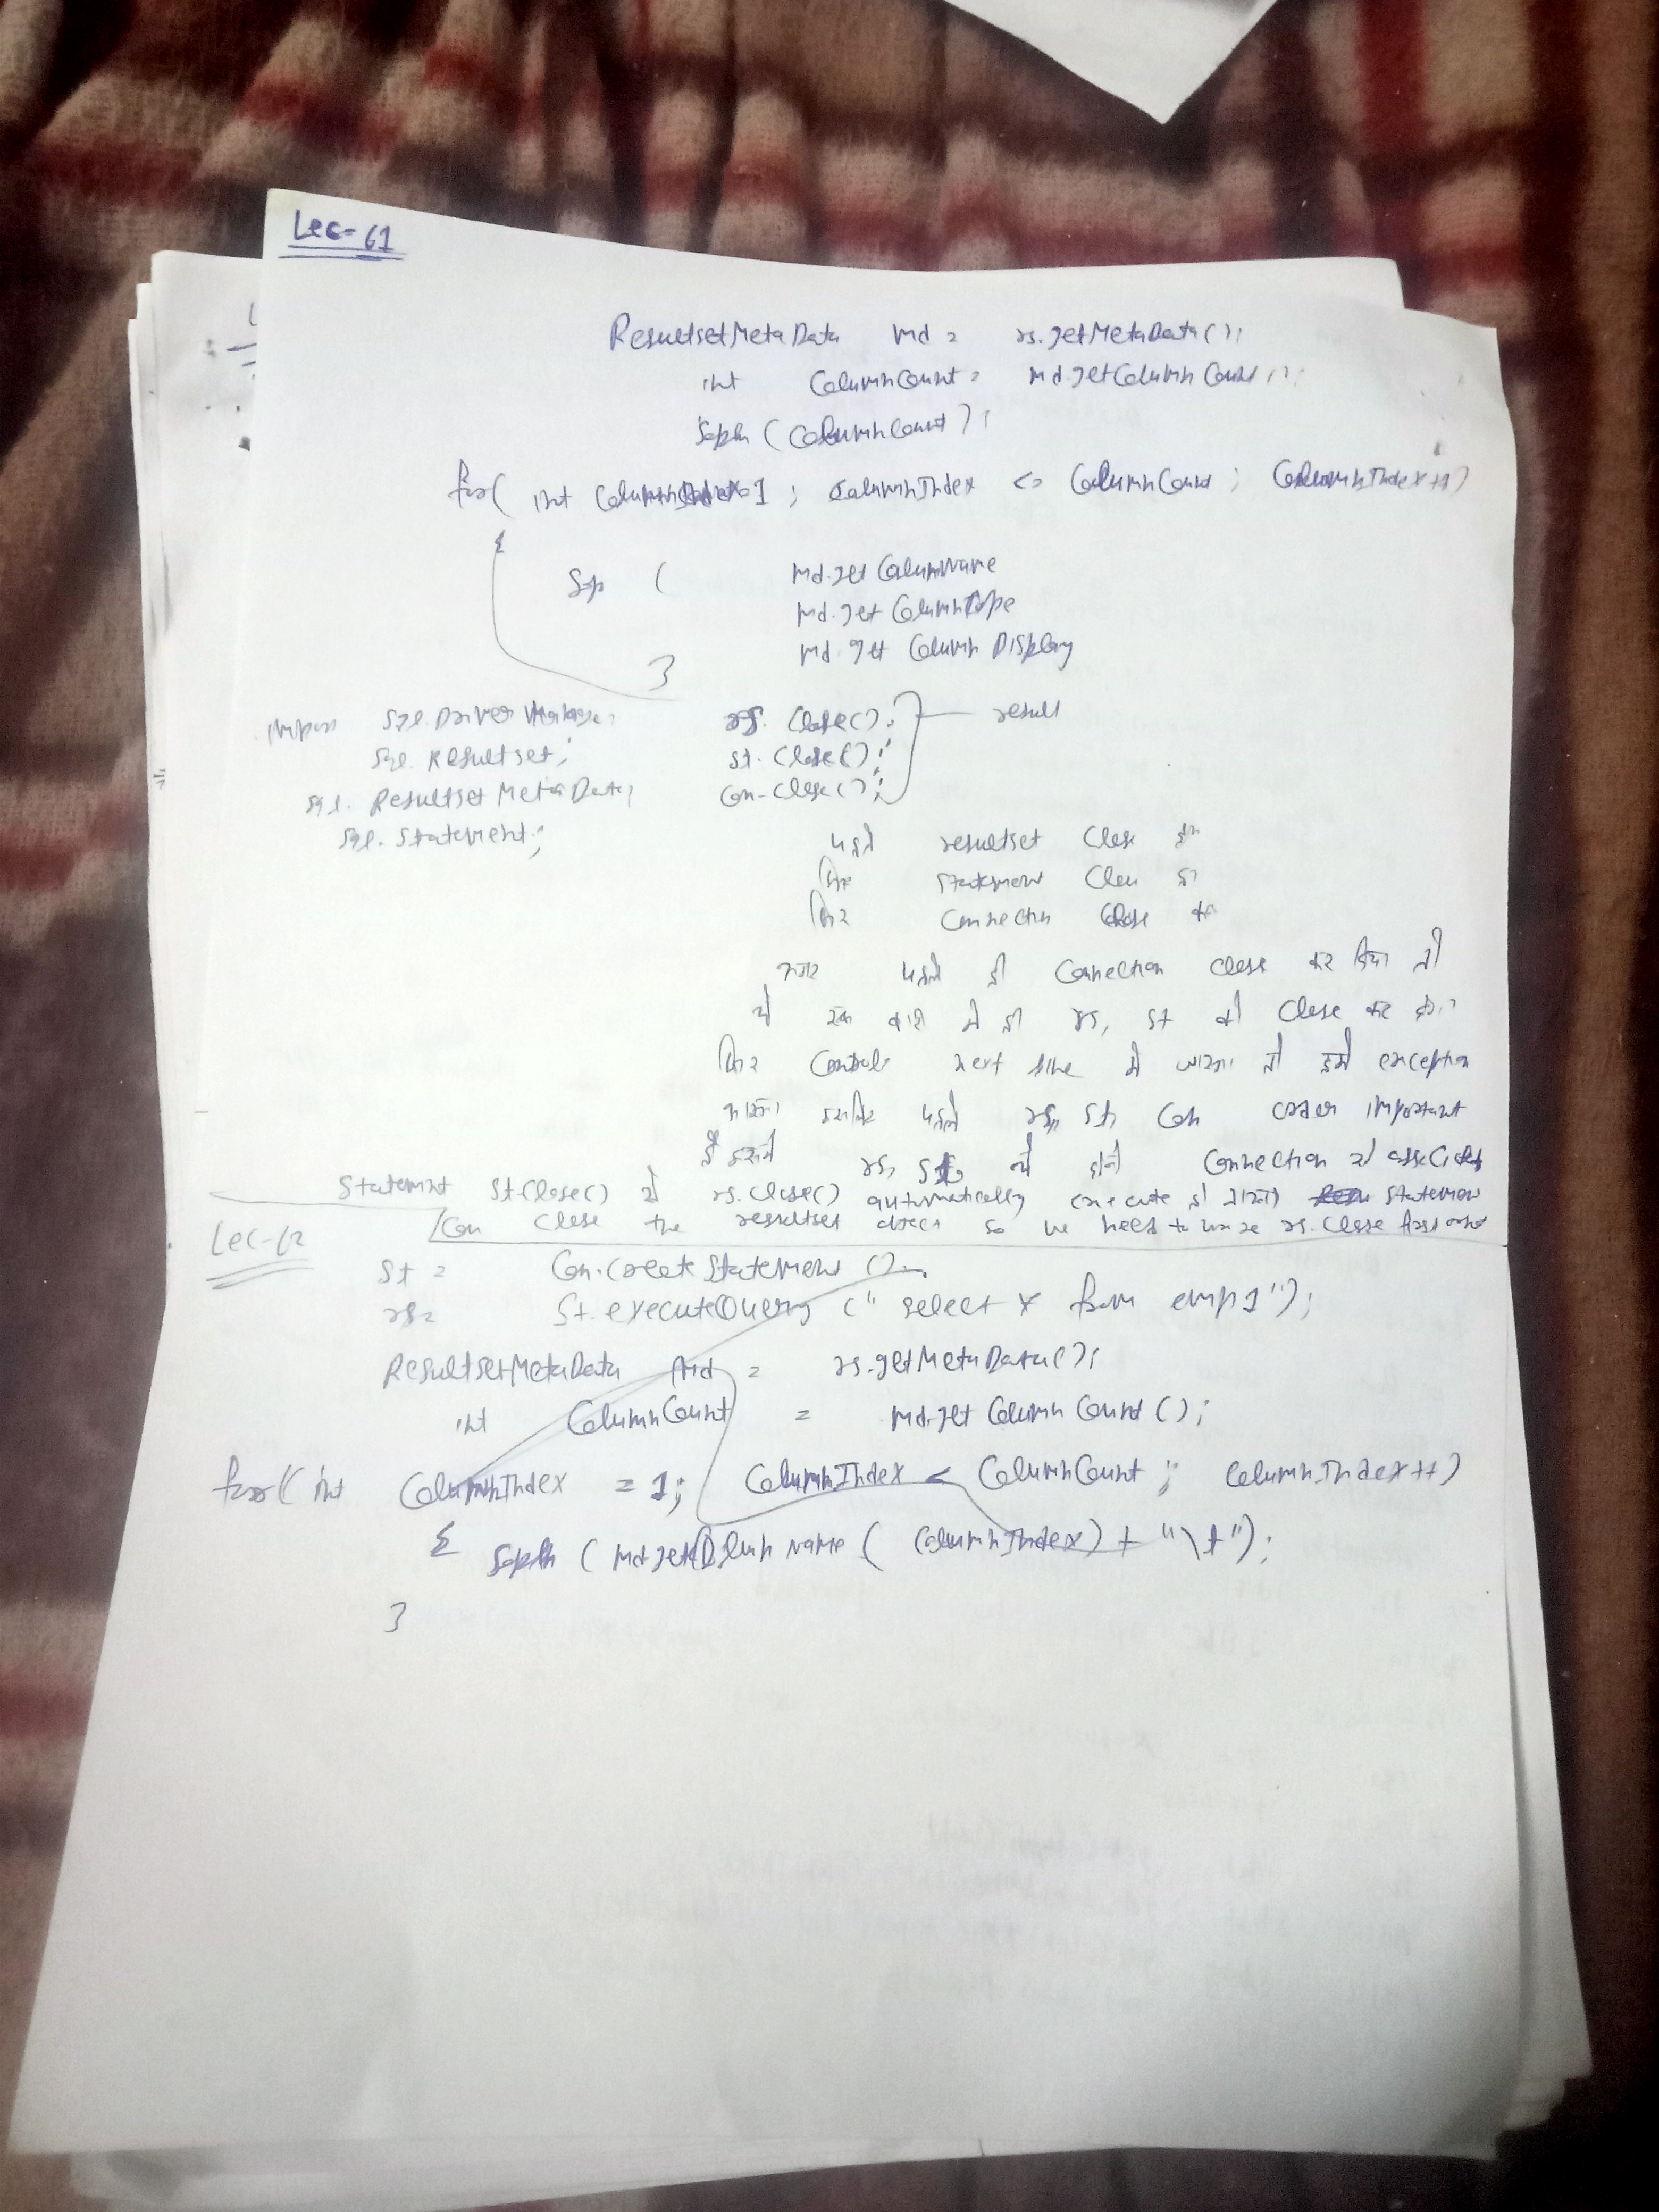 Lec-61
ResultsetMetaData md = rs.getMetaData();
int ColumnCount = md.getColumnCount();
Sopln (ColumnCount);
for( int ColumnIndex=1 ; ColumnIndex <= ColumnCount ; ColumnIndex++)
{
Sop ( md.get ColumnName
md.get ColumnType
md.get Column Display
}
import sql.Driver Manager; rs. Close(); result
sql. Resultset; st. Close();
sql. Resultset MetaData; Con. Close();
sql. Statement;
पहले resultset Close
फिर statement Close
फिर Connection Close
अगर पहले ही Connection close कर दिया तो
ये एक बारी में ही rs, st को Close कर देगा
फिर Control next line में आएगा तो हमे exception
आएगा इसलिए पहले rs, st, Con order important
है rs, st ये दोनों Connection से associated
Statemint St.Close() से rs.Close() automatically execute हो जाएगा statemen
/Con Close the resultset object so we need to rs.Close first
Lec-62
St = Con.Create Statement ();
rs= St.executeQuery (" select * from emp1");
ResultsetMetaData md = rs.getMetaData();
int ColumnCount = md.get Column Count ();
for( int ColumnIndex = 1; ColumnIndex < ColumnCount ; ColumnIndex++)
{ Sopln ( md.getColumn Name ( ColumnIndex) + "\t");
}